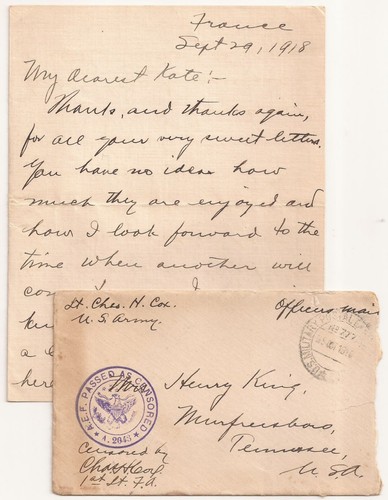 France
Sept 29, 1918
My dearest Kate:-
Thanks, and thanks again,
for all your very sweet letters.
You have no idea how
much they are enjoyed and
how I look forward to the
time when another will
a
here
Lt. Chas. H. Cox.
U.S. Army.
Officers mail
U.S. MILITARY
A.E.F. PASSED AS CENSORED
A. 2043
Mrs. Henry King,
Murfreesboro,
Tennessee,
U.S.A.
Censored by
Chas H Cox
1st Lt. F.A.